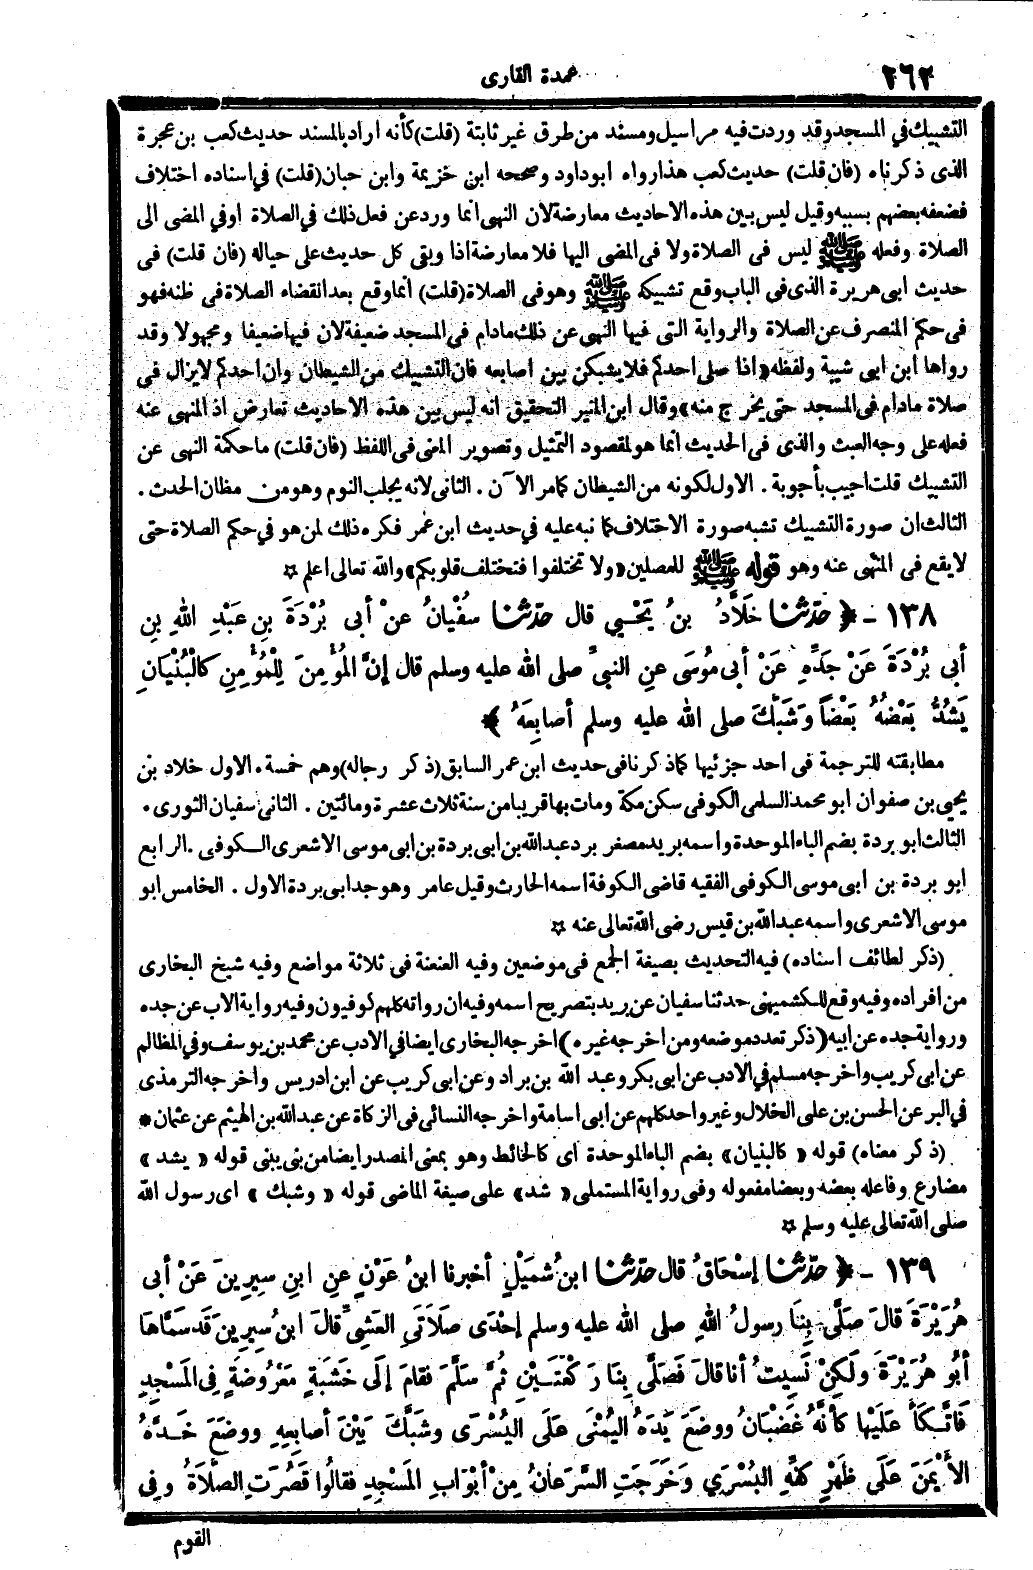 ٢٦٢
عمدة القارى
التشبيك في المسجد وقد وردت فيه مراسيل ومسند من طرق غير ثابتة (قلت) كأنه اراد بالمسند حديث كعب بن عجرة
الذى ذكرناه (فان قلت) حديث كعب هذا رواه ابو داود وصححه ابن خزيمة وابن حبان (قلت) في اسناده اختلاف
فضعفه بعضهم بسببه وقيل ليس بين هذه الاحاديث معارضة لان النهى انما ورد عن فعل ذلك في الصلاة او في المضى الى
الصلاة وفعله ﷺ ليس فى الصلاة ولا فى المضى اليها فلا معارضة اذا وبقى كل حديث على حياله (فان قلت) فى
حديث ابى هريرة الذى فى الباب وقع تشبيكه ﷺ وهو فى الصلاة (قلت) انما وقع بعد انقضاء الصلاة فى ظنه فهو
فى حكم المنصرف عن الصلاة والرواية التى فيها النهى عن ذلك مادام فى المسجد ضعيفة لان فيها ضعيفا ومجهولا وقد
رواها ابن ابى شيبة ولفظه «اذا صلى احدكم فلا يشبكن بين اصابعه فان التشبيك من الشيطان وان احدكم لا يزال فى
صلاة مادام فى المسجد حتى يخرج منه» وقال ابن المنير التحقيق انه ليس بين هذه الاحاديث تعارض اذ المنهى عنه
فعله على وجه العبث والذى فى الحديث انما هو لمقصود التمثيل وتصوير المعنى فى اللفظ (فان قلت) ما حكمة النهى عن
التشبيك قلت اجيب بأجوبة . الاول لكونه من الشيطان كما مر الآن . الثانى لانه يجلب النوم وهو من مظان الحدث .
الثالث ان صورة التشبيك تشبه صورة الاختلاف كما نبه عليه في حديث ابن عمر فكره ذلك لمن هو في حكم الصلاة حتى
لا يقع فى المنهى عنه وهو قوله ﷺ للمصلين «ولا تختلفوا فتختلف قلوبكم» والله تعالى اعلم ☆
١٣٨ - ﴿ حدّثنا خَلَّادُ بنُ يَحْيىٰ قال حدّثنا سُفْيانُ عنْ أبى بُرْدَةَ بنِ عَبْدِ اللهِ بنِ
أبي بُرْدَةَ عَنْ جَدِّهِ عَنْ أبى مُوسَى عنِ النبىِّ صلى الله عليه وسلم قال إنَّ المُؤْمِنَ لِلْمُؤْمِنِ كالْبُنْيانِ
يَشُدُّ بَعْضُهُ بَعْضاً وَشَبَّكَ صلى الله عليه وسلم أصابِعَهُ ﴾
مطابقته للترجمة فى احد جزئيها كما ذكرنا فى حديث ابن عمر السابق (ذكر رجاله) وهم خمسة . الاول خلاد بن
يحيى بن صفوان ابو محمد السلمى الكوفى سكن مكة ومات بها قريبا من سنة ثلاث عشرة ومائتين . الثانى سفيان الثورى .
الثالث ابو بردة بضم الباء الموحدة واسمه بريد مصغر برد عبد الله بن ابى بردة بن ابى موسى الاشعرى الكوفى . الرابع
ابو بردة بن ابى موسى الكوفى الفقيه قاضى الكوفة اسمه الحارث وقيل عامر وهو جد ابى بردة الاول . الخامس ابو
موسى الاشعرى واسمه عبد الله بن قيس رضى الله تعالى عنه ☆
(ذكر لطائف اسناده) فيه التحديث بصيغة الجمع فى موضعين وفيه العنعنة فى ثلاثة مواضع وفيه شيخ البخارى
من افراده وفيه وقع للكشميهنى حدثنا سفيان عن بريد بتصريح اسمه وفيه ان رواته كلهم كوفيون وفيه رواية الاب عن جده
ورواية جده عن ابيه (ذكر تعدد موضعه ومن اخرجه غيره) اخرجه البخارى ايضا في الادب عن محمد بن يوسف وفي المظالم
عن ابى كريب واخرجه مسلم في الادب عن ابى بكر وعبد الله بن براد وعن ابى كريب عن ابن ادريس واخرجه الترمذى
في البر عن الحسن بن على الخلال وغير واحد كلهم عن ابى اسامة واخرجه النسائى فى الزكاة عن عبد الله بن الهيثم عن عثمان *
(ذكر معناه) قوله «كالبنيان» بضم الباء الموحدة اى كالحائط وهو بمعنى المصدر ايضا من بنى يبنى قوله «يشد»
مضارع وفاعله بعضه وبعضا مفعوله وفى رواية المستملى «شد» على صيغة الماضى قوله «وشبك» اى رسول الله
صلى الله تعالى عليه وسلم ☆
١٣٩ - ﴿ حدّثنا إسْحَاقُ قال حدّثنا ابنُ شُمَيْلٍ أخبرنا ابنُ عَوْنٍ عنِ ابنِ سِيرِينَ عَنْ أبى
هُرَيْرَةَ قالَ صَلَّى بِنَا رسولُ اللهِ صلى الله عليه وسلم إحْدَى صَلَاتَيِ العَشِىِّ قالَ ابنُ سِيرِينَ قَد سَمَّاهَا
أبُو هُرَيْرَةَ وَلَكِنْ نَسِيتُ أنا قالَ فَصَلَّى بِنَا رَكْعَتَيْنِ ثُمَّ سَلَّمَ فقامَ إلَى خَشَبَةٍ مَعْرُوضَةٍ فِى المَسْجِدِ
فَاتَّكَأَ عَلَيْها كأنَّهُ غَضْبَانُ ووضَعَ يَدَهُ اليُمْنَى عَلَى اليُسْرَى وشَبَّكَ بَيْنَ أصابِعِهِ ووضَعَ خَدَّهُ
الأَيْمَنَ عَلَى ظَهْرِ كفِّهِ اليُسْرَي وَخَرَجَتِ السَّرَعَانُ مِنْ أبْوَابِ المَسْجِدِ فقالُوا قَصُرَتِ الصَّلَاةُ وفِي
القوم